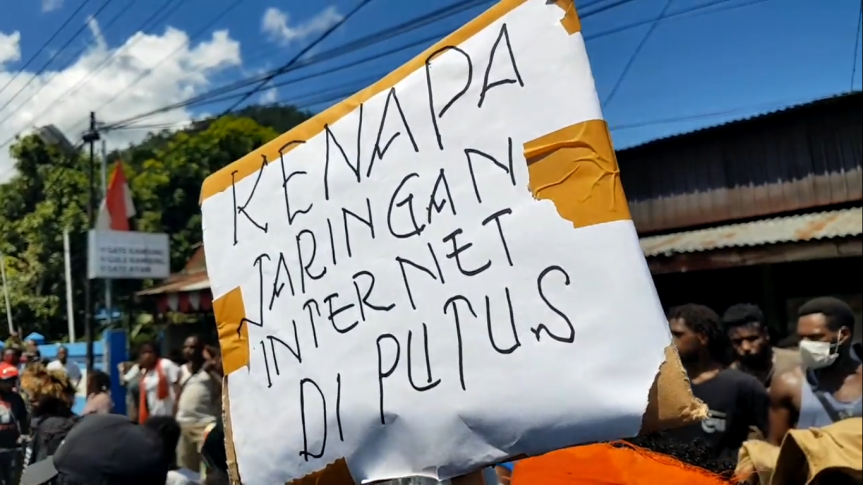 KENAPA
JARINGAN
INTERNET
DI PUTUS